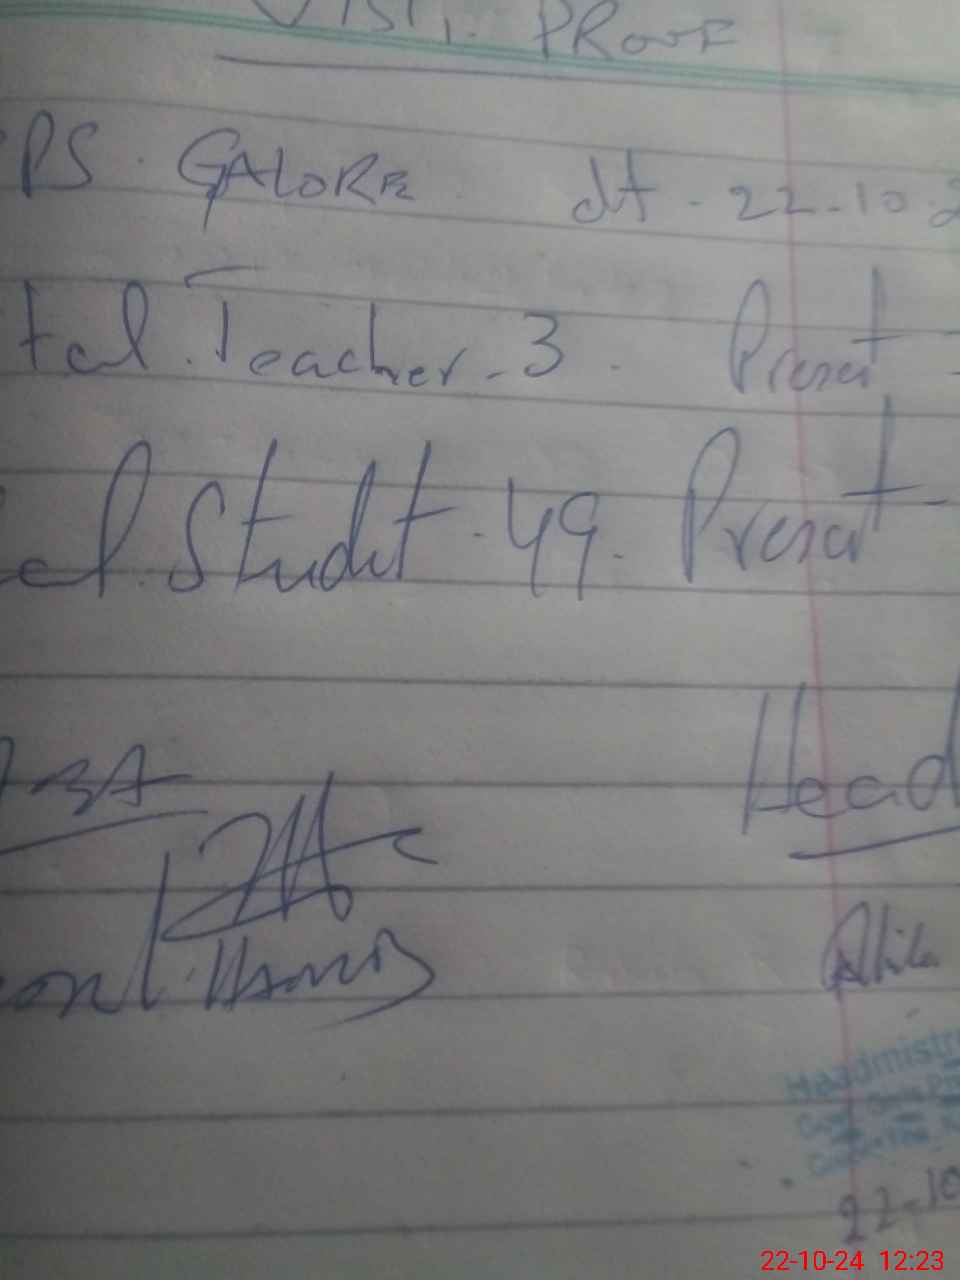 VISIT. PROOF
PS. GALORE dt - 22-10-2
tal. Teacher - 3. Present -
al. Studt - 49. Present -
Head
Headmistre
22-10
22-10-24 12:23